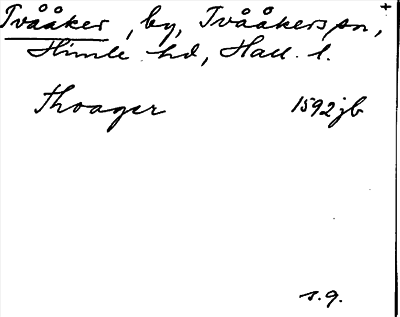 Tvååker, by, Tvååkers sn, +
Himle hd, Hall. l.
Thoager 1592 jb
s. 9.